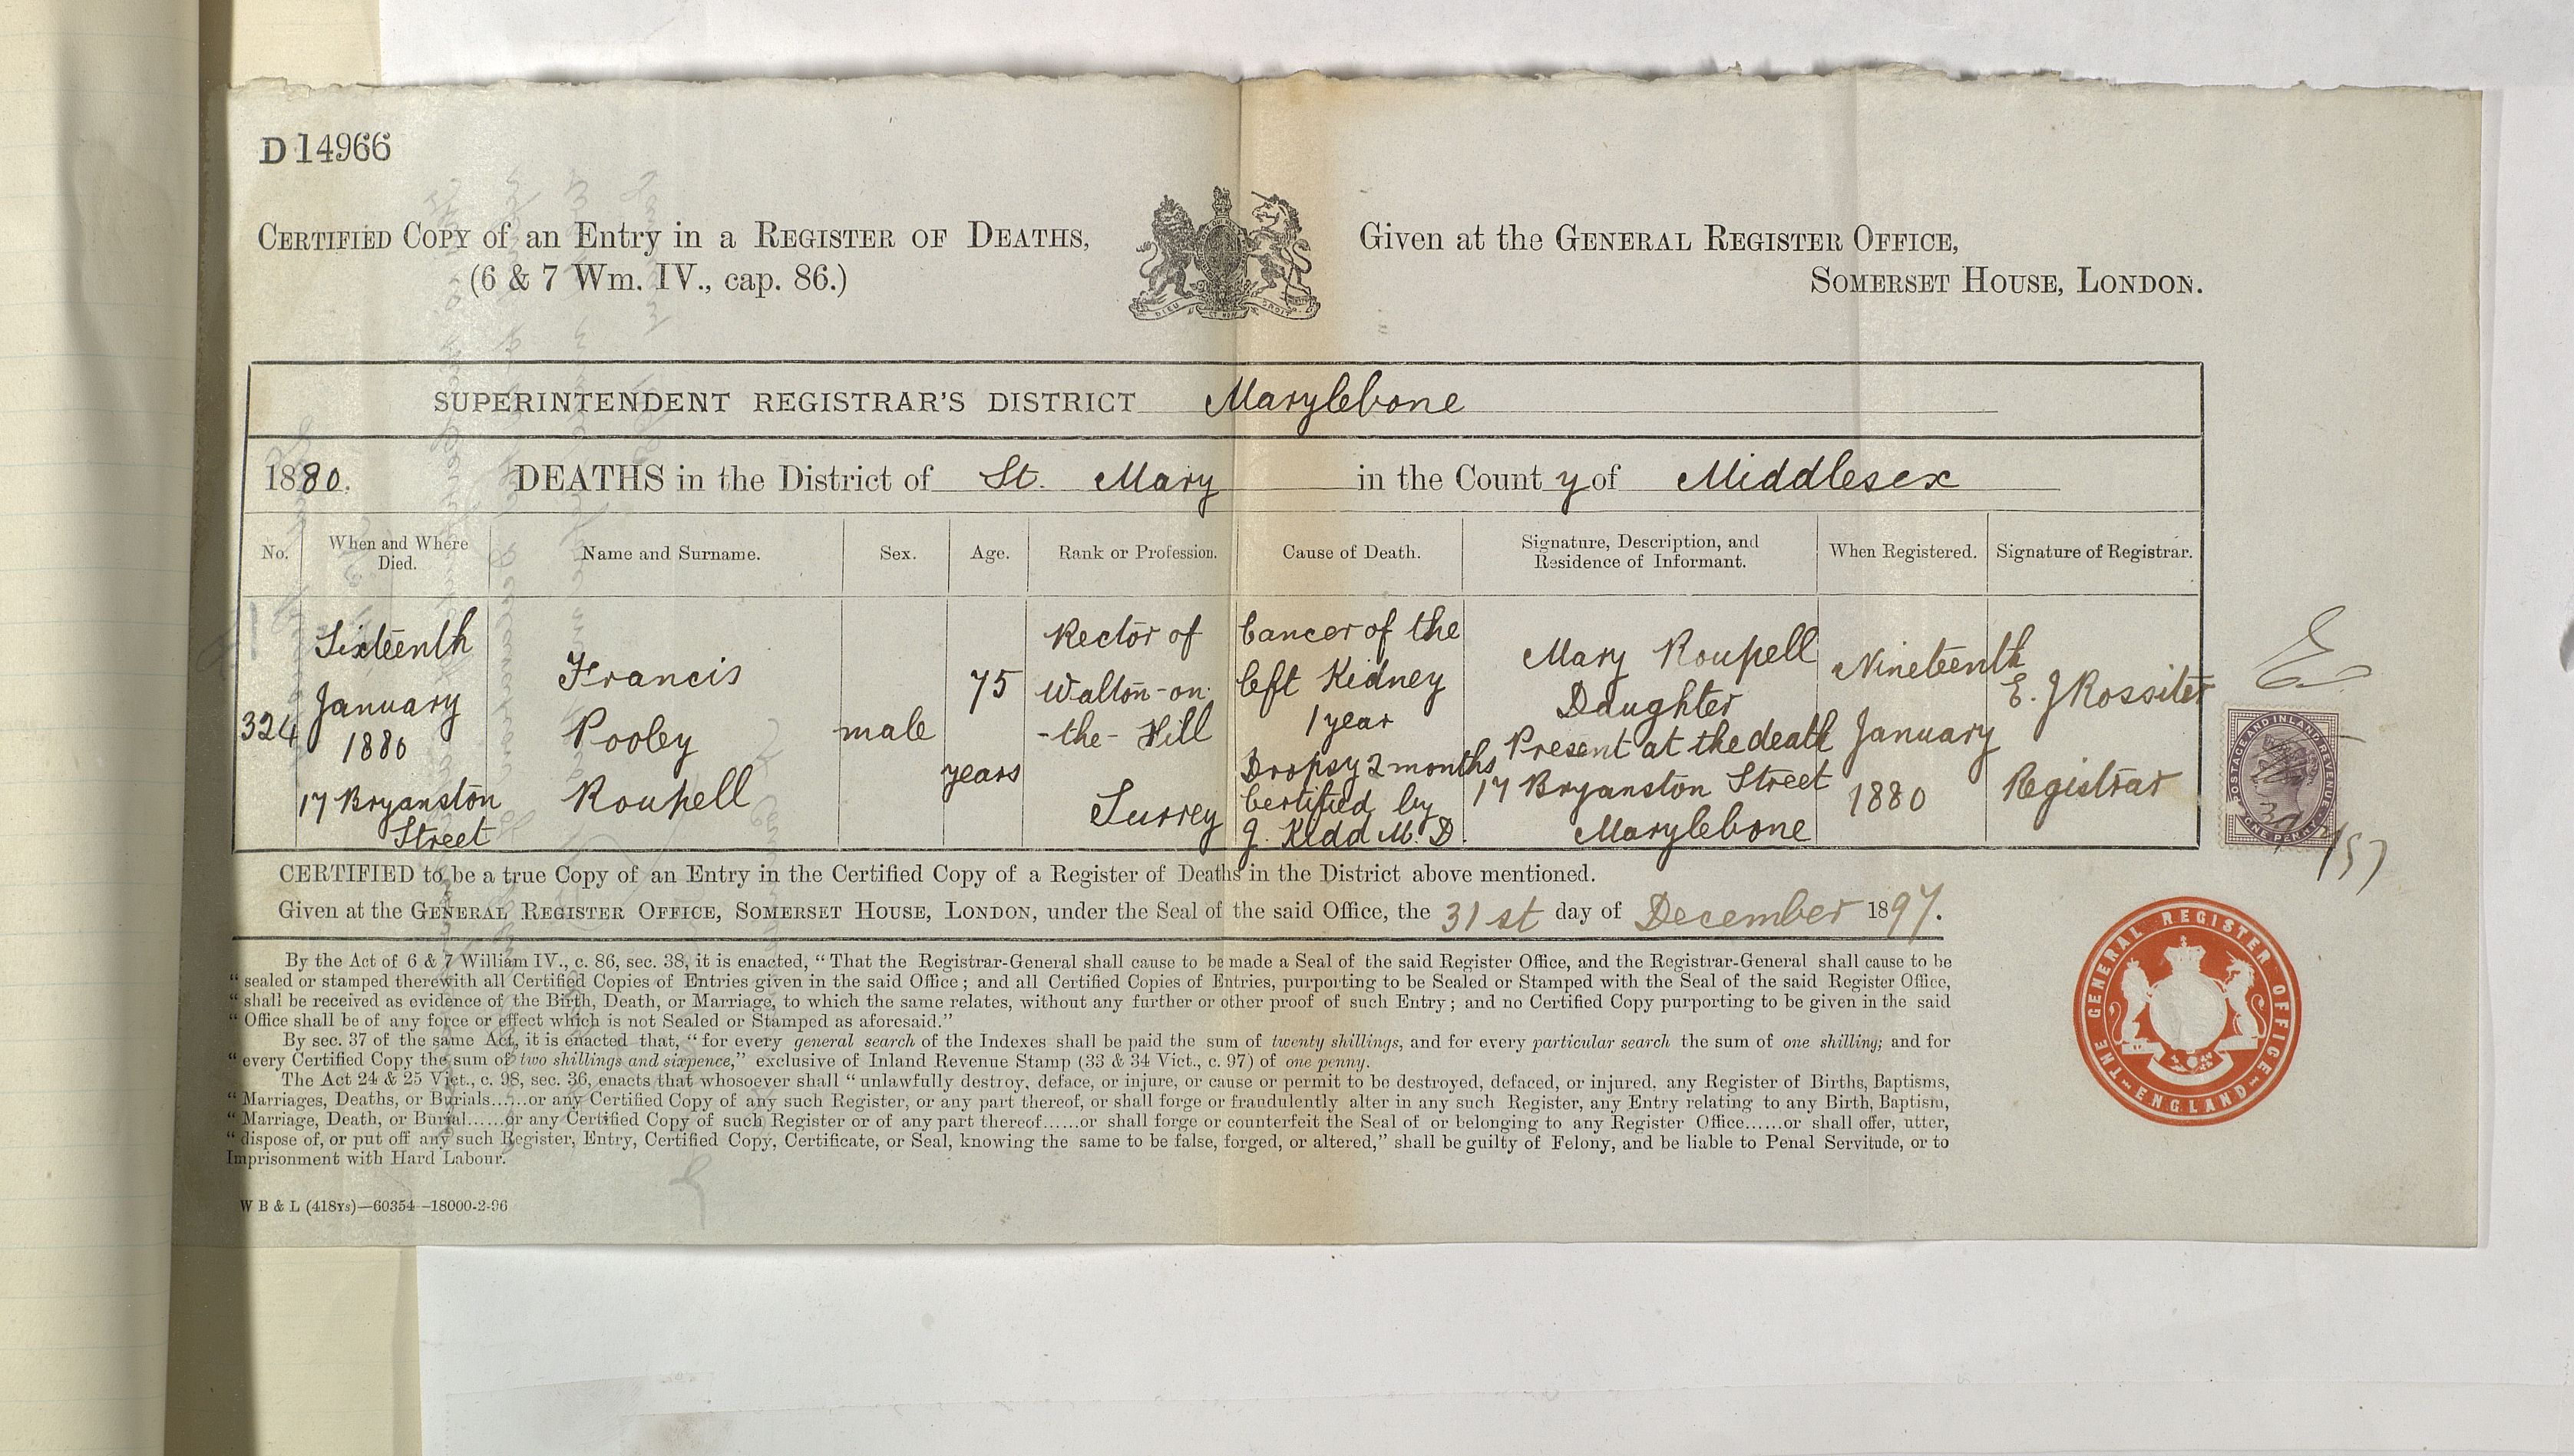 D 14966
CERTIFIED COPY of an Entry in a REGISTER OF DEATHS,
(6 & 7 Wm. IV., cap. 86.)
DIEU ET MON DROIT
Given at the GENERAL REGISTER OFFICE,
SOMERSET HOUSE, LONDON.
SUPERINTENDENT REGISTRAR'S DISTRICT Marylebone
1880. DEATHS in the District of St. Mary in the County of Middlesex
No.
When and Where
Died.
Name and Surname.
Sex.
Age.
Rank or Profession.
Cause of Death.
Signature, Description, and
Residence of Informant.
When Registered.
Signature of Registrar.
324
Sixteenth
January
1880
17 Bryanston
Street
Francis
Pooley
Roupell
male
75
years
Rector of
Walton-on-
-the-Hill
Surrey
Cancer of the
left Kidney
1 year
Dropsy 2 months
Certified by
J. Kidd M. D.
Mary Roupell
Daughter
Present at the death
17 Bryanston Street
Marylebone
Nineteenth
January
1880
E. J Rossiter
Registrar
POSTAGE AND INLAND REVENUE
ONE PENNY
CERTIFIED to be a true Copy of an Entry in the Certified Copy of a Register of Deaths in the District above mentioned.
Given at the GENERAL REGISTER OFFICE, SOMERSET HOUSE, LONDON, under the Seal of the said Office, the 31st day of December 1897.
By the Act of 6 & 7 William IV., c. 86, sec. 38, it is enacted, "That the Registrar-General shall cause to be made a Seal of the said Register Office, and the Registrar-General shall cause to be
"sealed or stamped therewith all Certified Copies of Entries given in the said Office; and all Certified Copies of Entries, purporting to be Sealed or Stamped with the Seal of the said Register Office,
"shall be received as evidence of the Birth, Death, or Marriage, to which the same relates, without any further or other proof of such Entry; and no Certified Copy purporting to be given in the said
"Office shall be of any force or effect which is not Sealed or Stamped as aforesaid."
By sec. 37 of the same Act, it is enacted that, "for every general search of the Indexes shall be paid the sum of twenty shillings, and for every particular search the sum of one shilling; and for
"every Certified Copy the sum of two shillings and sixpence," exclusive of Inland Revenue Stamp (33 & 34 Vict., c. 97) of one penny.
The Act 24 & 25 Vict., c. 98, sec. 36, enacts that whosoever shall "unlawfully destroy, deface, or injure, or cause or permit to be destroyed, defaced, or injured, any Register of Births, Baptisms,
"Marriages, Deaths, or Burials......or any Certified Copy of any such Register, or any part thereof, or shall forge or fraudulently alter in any such Register, any Entry relating to any Birth, Baptism,
"Marriage, Death, or Burial......or any Certified Copy of such Register or of any part thereof......or shall forge or counterfeit the Seal of or belonging to any Register Office......or shall offer, utter,
"dispose of, or put off any such Register, Entry, Certified Copy, Certificate, or Seal, knowing the same to be false, forged, or altered," shall be guilty of Felony, and be liable to Penal Servitude, or to
Imprisonment with Hard Labour.
THE GENERAL REGISTER OFFICE
ENGLAND
W B & L (418Ys)—60354—18000-2-96